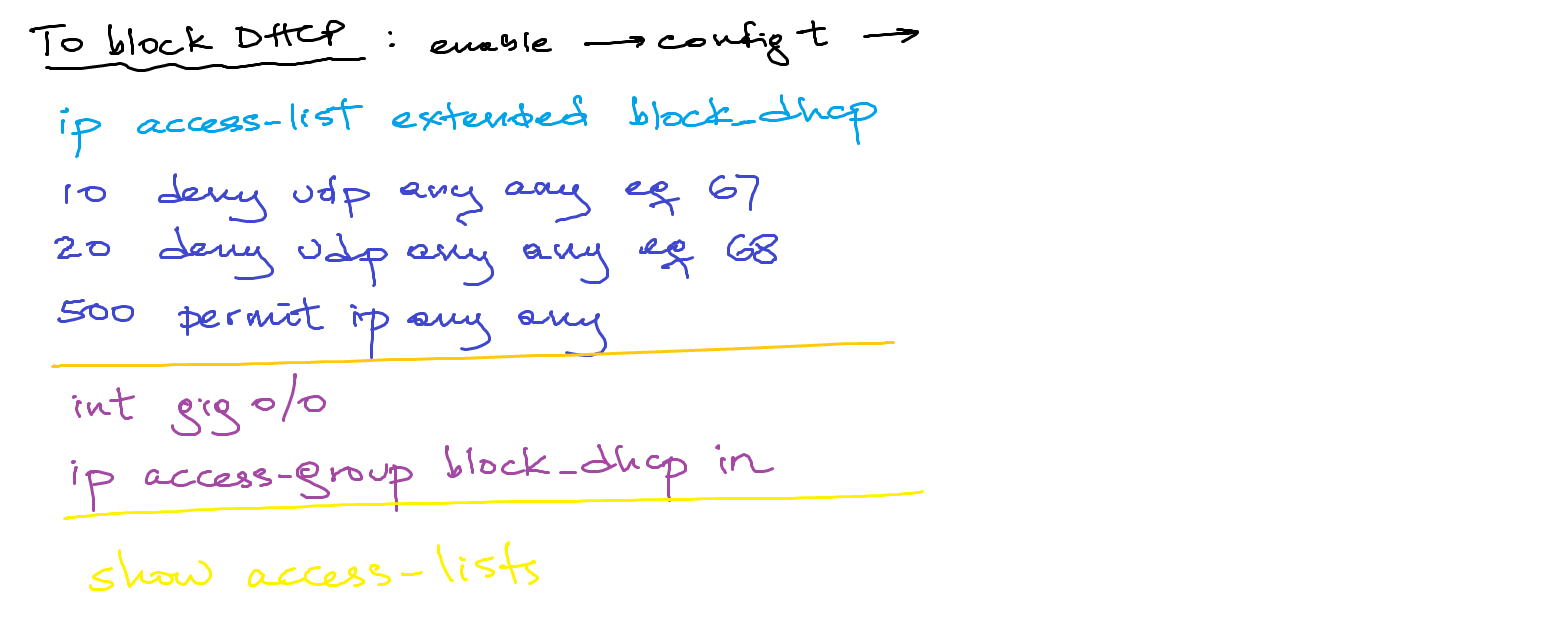 To block DHCP : enable → config t →
ip access-list extended block_dhcp
10 deny udp any any eq 67
20 deny udp any any eq 68
500 permit ip any any
int gig 0/0
ip access-group block_dhcp in
show access-lists